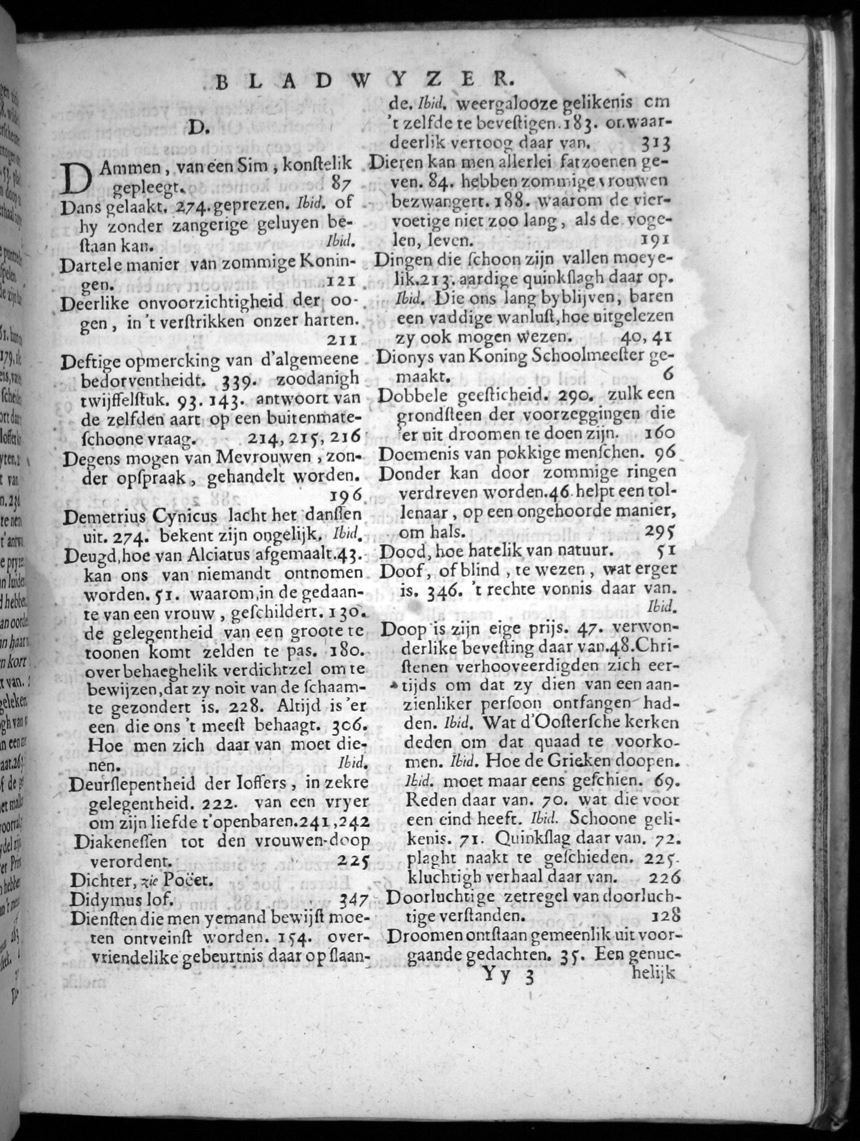 BLADWYZER.
D.
DAmmen, van een Sim, konstelik
gepleegt. 87
Dans gelaakt. 274. geprezen. Ibid. of
hy zonder zangerige geluyen be-
staan kan. Ibid.
Dartele manier van zommige Konin-
gen. 121
Deerlike onvoorzichtigheid der oo-
gen, in 't verstrikken onzer harten.
211
Deftige opmercking van d'algemeene
bedorventheidt. 339. zoodanigh
twijffelstuk. 93. 143. antwoort van
de zelfden aart op een buitenmate-
schoone vraag. 214, 215, 216
Degens mogen van Mevrouwen, zon-
der opspraak, gehandelt worden.
196
Demetrius Cynicus lacht het danssen
uit. 274. bekent zijn ongelijk. Ibid.
Deugd, hoe van Alciatus afgemaalt. 43.
kan ons van niemandt ontnomen
worden. 51. waarom, in de gedaan-
te van een vrouw, geschildert. 130.
de gelegentheid van een groote te
toonen komt zelden te pas. 180.
overbehaeghelik verdichtzel om te
bewijzen, dat zy noit van de schaam-
te gezondert is. 228. Altijd is 'er
een die ons 't meest behaagt. 306.
Hoe men zich daar van moet die-
nen. Ibid.
Deurslepentheid der Ioffers, in zekre
gelegentheid. 222. van een vryer
om zijn liefde t'openbaren. 241, 242
Diakenessen tot den vrouwen-doop
verordent. 225
Dichter, zie Poëet.
Didymus lof. 347
Diensten die men yemand bewijst moe-
ten ontveinst worden. 154. over-
vriendelike gebeurtnis daar op slaan-
de. Ibid. weergalooze gelikenis om
't zelfde te bevestigen. 183. onwaar-
deerlik vertoog daar van. 313
Dieren kan men allerlei fatzoenen ge-
ven. 84. hebben zommige vrouwen
bezwangert. 188. waarom de vier-
voetige niet zoo lang, als de voge-
len, leven. 191
Dingen die schoon zijn vallen moeye-
lik. 213. aardige quinkslagh daar op.
Ibid. Die ons lang byblijven, baren
een vaddige wanlust, hoe uitgelezen
zy ook mogen wezen. 40, 41
Dionys van Koning Schoolmeester ge-
maakt. 6
Dobbele geesticheid. 290. zulk een
grondsteen der voorzeggingen die
'er uit droomen te doen zijn. 160
Doemenis van pokkige menschen. 96
Donder kan door zommige ringen
verdreven worden. 46. helpt een tol-
lenaar, op een ongehoorde manier,
om hals. 295
Dood, hoe hatelik van natuur. 51
Doof, of blind, te wezen, wat erger
is. 346. 't rechte vonnis daar van.
Ibid.
Doop is zijn eige prijs. 47. verwon-
derlike bevesting daar van. 48. Chri-
stenen verhooveerdigden zich eer-
tijds om dat zy dien van een aan-
zienliker persoon ontfangen had-
den. Ibid. Wat d'Oostersche kerken
deden om dat quaad te voorko-
men. Ibid. Hoe de Grieken doopen.
Ibid. moet maar eens geschien. 69.
Reden daar van. 70. wat die voor
een eind heeft. Ibid. Schoone geli-
kenis. 71. Quinkslag daar van. 72.
plaght naakt te geschieden. 225.
kluchtigh verhaal daar van. 226
Doorluchtige zetregel van doorluch-
tige verstanden. 128
Droomen ontstaan gemeenlik uit voor-
gaande gedachten. 35. Een genuc-
Yy 3 helijk